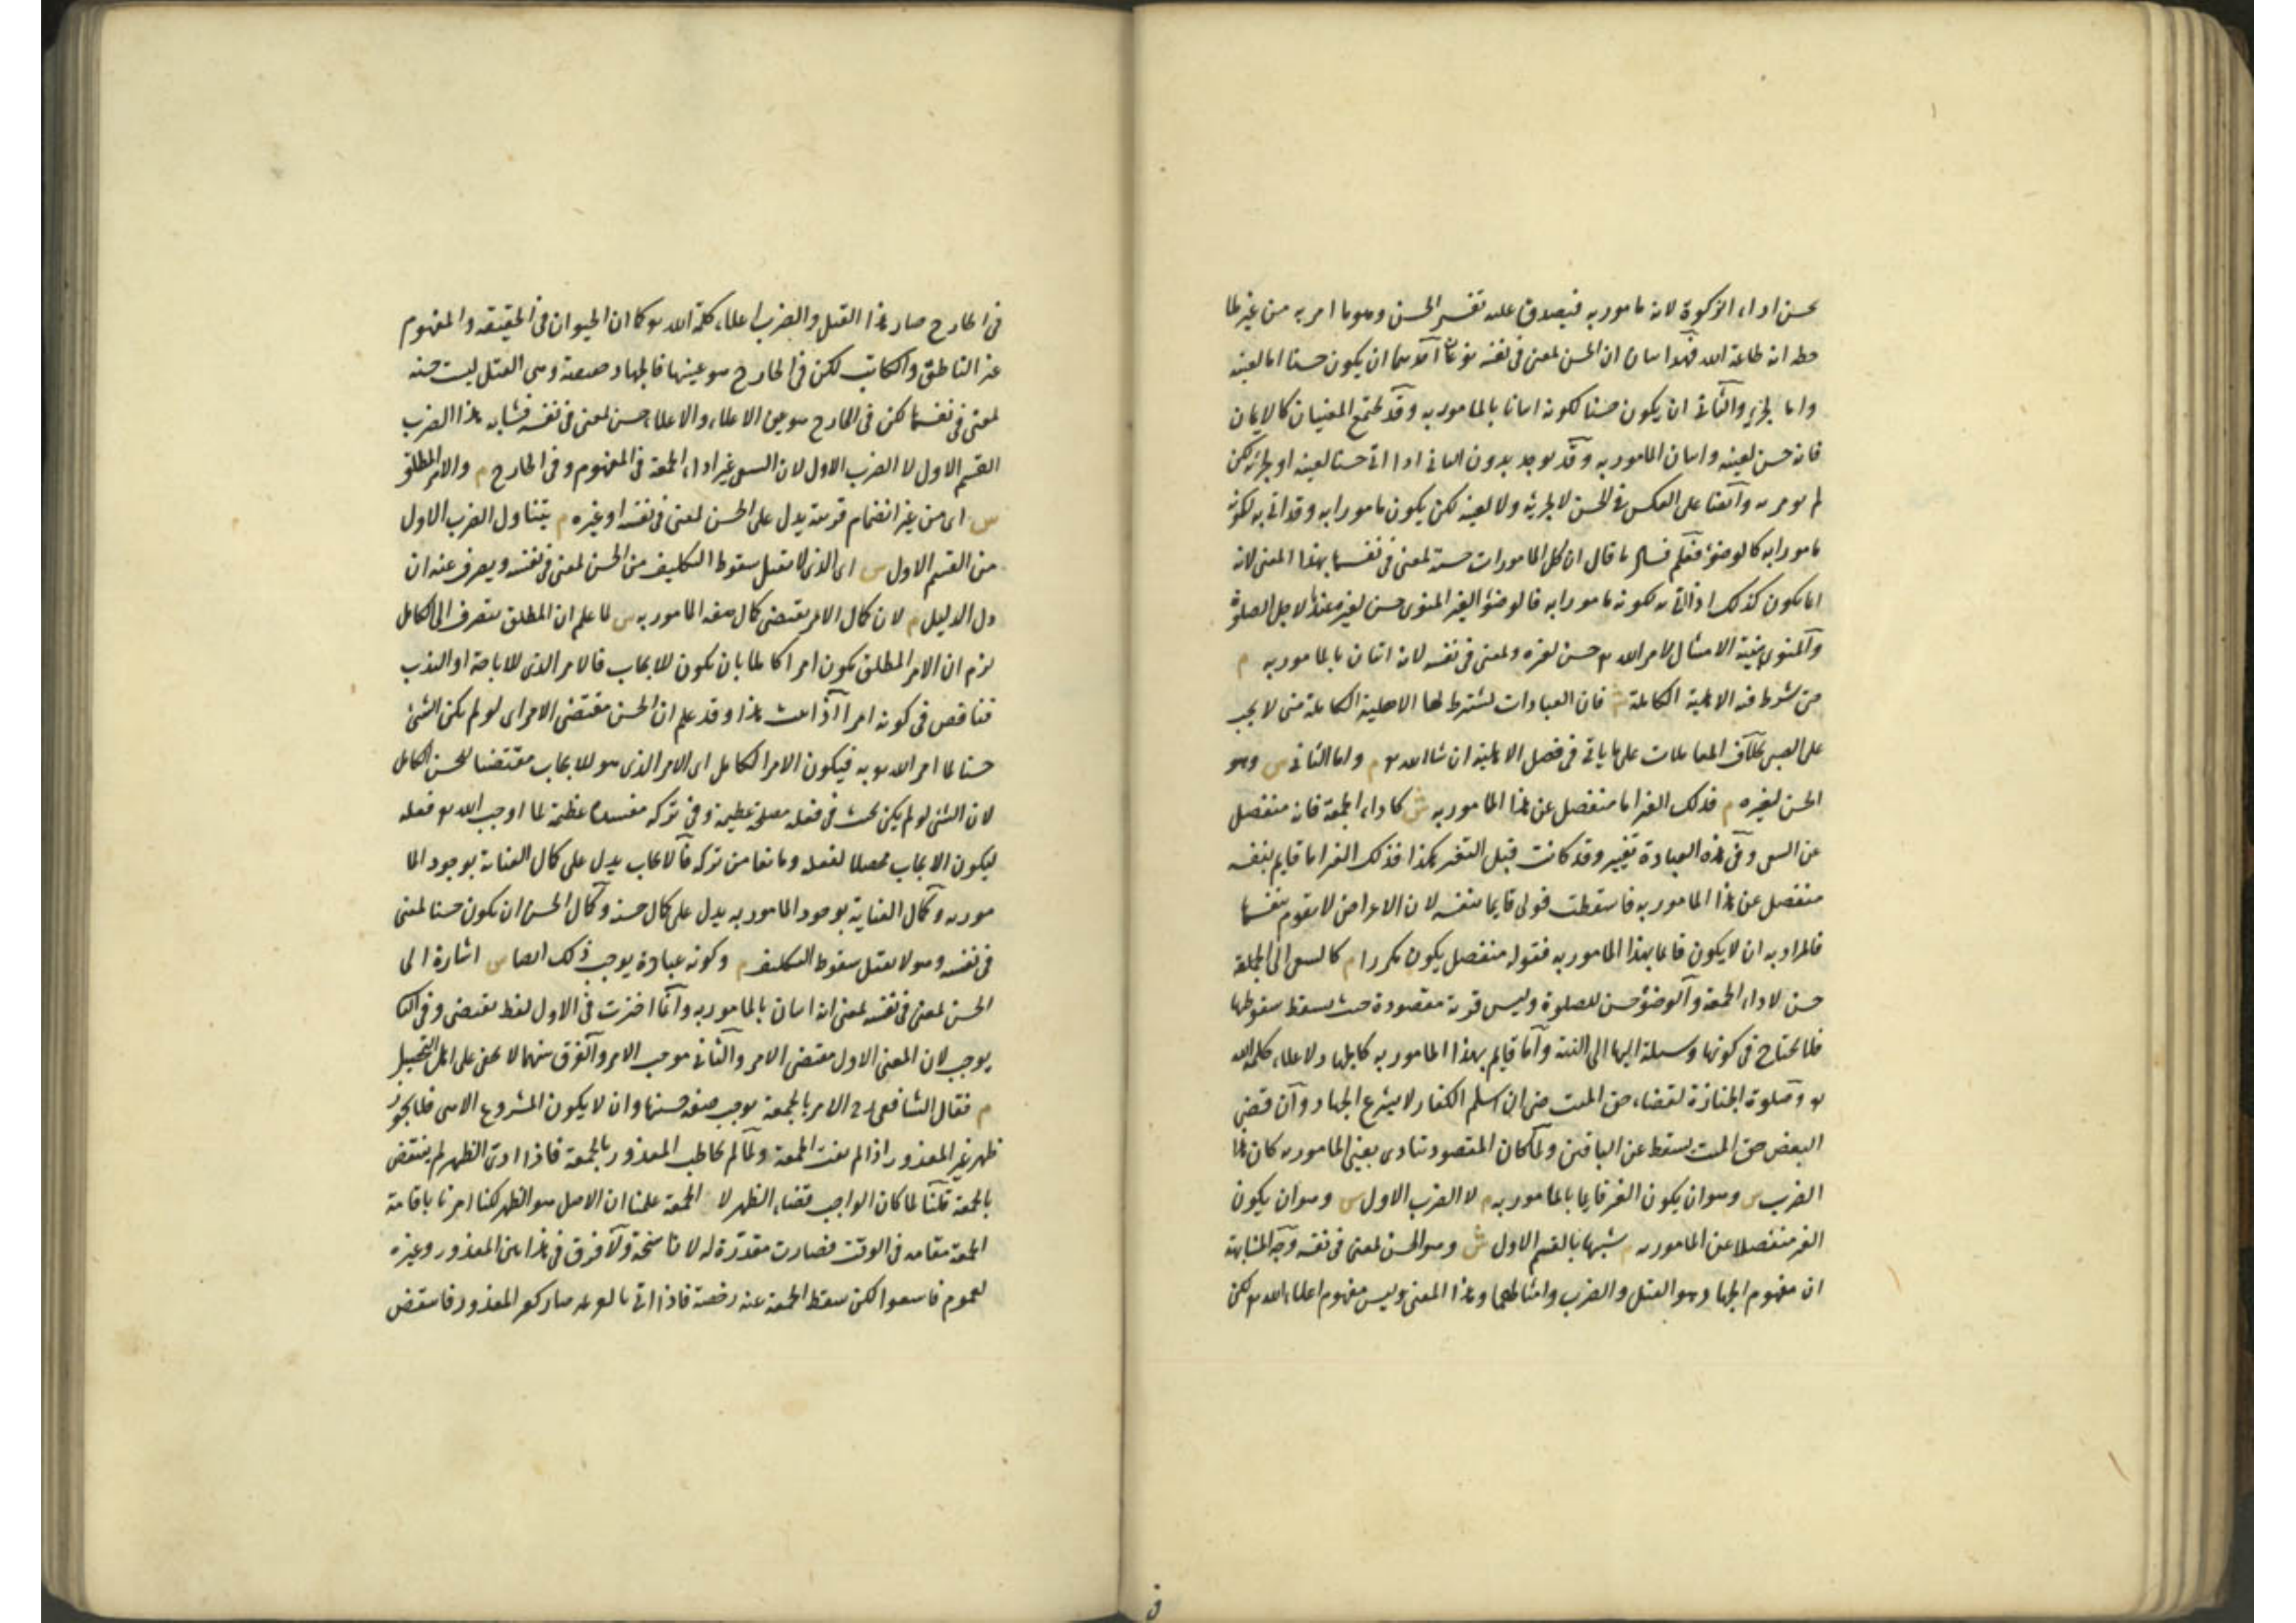 يحسن اداء الزكوة لانه مامور به فيصدق عليه تفسير الحسن وهو ما امر به من غير ملا
حظة انه طاعة الله فهذا بيان ان الحسن لمعنى في نفسه نوعان احدهما ان يكون حسنا اما لعينه
واما لجزئه والثاني ان يكون حسنا لكونه اتيانا بالمامور به وقد يجتمع المعنيان كالايمان
فانه حسن لعينه واتيان المامور به وقد يوجد بدون الثاني اذا اتى حسنا لعينه او لجزئه لكن
لم يومر به وايضا على العكس في الحسن لا لجزئه ولا لعينه لكن يكون مامورا به وقد اتى به لكونه
مامورا به كالوضوء فعلم فساد ما قال ان كل المامورات حسنة لمعنى في نفسها بهذا المعنى لانه
انما يكون كذلك اذا اتى به لكونه مامورا به فالوضوء الغير المنوى حسن لغيره عندنا لاجل الصلوة
والمنوى بنية الامتثال لامر الله تع حسن لغيره ولمعنى في نفسه لانه اتيان بالمامور به م
حتى شرط فيه الاهلية الكاملة ش فان العبادات يشترط لها الاهلية الكاملة حتى لا يجب
على الصبي بخلاف المعاملات على ما ياتى في فصل الاهلية ان شا الله تع م واما الثاني س وهو
الحسن لغيره م فذلك الغير اما منفصل عن هذا المامور به ش كاداء الجمعة فانه منفصل
عن السعى وفي هذه العبادة تغيير وقد كانت قبل التغير هكذا فذلك الغير اما قايم بنفسه
منفصل عن هذا المامور به فاسقطت قولى قايما بنفسه لان الاعراض لا يقوم بنفسها
فالمراد به ان لا يكون قايما بهذا المامور به فقوله منفصل يكون مكررا م كالسعى الى الجمعة
حسن لاداء الجمعة والوضوء حسن للصلوة وليس قربة مقصودة حيث يسقط بسقوطها
فلا يحتاج في كونها وسيلة اليها الى النية واما قايم بهذا المامور به كالجهاد لاعلاء كلمة الله
تع وصلوة الجنازة لقضاء حق الميت حتى ان اسلم الكفار لا يشرع الجهاد وان قضى
البعض حق الميت يسقط عن الباقين ولما كان المقصود يتادى بعين المامور به كان هذا
الضرب س وهو ان يكون الغير قايما بالمامور به م لا الضرب الاول س وهو ان يكون
الغير منفصلا عن المامور به م شبيها بالقسم الاول ش وهو الحسن لمعنى في نفسه وجه المشابهة
ان مفهوم الجهاد وهو القتل والضرب وامثالهما وهذا المعنى وليس مفهوم اعلاء الله تع لكن
في
في الخارج صار هذا القتل والضرب اعلاء كلمة الله تع كما ان الحيوان في الحقيقة والمفهوم
غير الناطق والكاتب لكن في الخارج هو عينها فالجهاد حقيقة وهى القتل ليست حسنة
لمعنى في نفسها لكن في الخارج هو عين الاعلاء والاعلاء حسن لمعنى في نفسه فشابه هذا الضرب
القسم الاول لا الضرب الاول لان السعى غير اداء الجمعة في المفهوم وفي الخارج م والامر المطلق
س اى من غير انضمام قرينة يدل على الحسن لمعنى في نفسه او غيره م يتناول الضرب الاول
من القسم الاول س اى الذى لا يقبل سقوط التكليف من الحسن لمعنى في نفسه ويصرف عنه ان
دل الدليل م لان كمال الامر يقتضى كمال صفة المامور به س لما علم ان المطلق ينصرف الى الكامل
لزم ان الامر المطلق يكون امرا كاملا بان يكون للايجاب فالامر الذى للاباحة او الندب
فناقص في كونه امرا اذا ثبت هذا وقد علم ان الحسن مقتضى الامر اى لو لم يكن الشئ
حسنا لما امر الله تع به فيكون الامر الكامل اى الامر الذى هو للايجاب مقتضيا للحسن الكامل
لان الشئ لو لم يكن بحيث في فعله مصلحة عظيمة وفي تركه مفسدة عظيمة لما اوجب الله تع فعله
ليكون الايجاب محصلا لفعله ومانعا من تركه فالايجاب يدل على كمال العناية بوجود الما
مور به وكمال العناية بوجود المامور به يدل على كمال حسنه وكمال الحسن ان يكون حسنا لمعنى
في نفسه وهو لا يقبل سقوط التكليف م وكونه عبادة يوجب ذلك ايضا س اشارة الى
الحسن لمعنى في نفسه لمعنى انه اتيان بالمامور به وانما اخترت في الاول لفظ يقتضى وفي الثا
يوجب لان المعنى الاول مقتضى الامر والثاني موجب الامر والفرق بينهما لا يخفى على اهل التحصيل
م فقال الشافعى رح الامر بالجمعة يوجب صفة حسنها وان لا يكون المشروع الا هى فلا يجوز
ظهر غير المعذور اذا لم تفت الجمعة ولما لم يخاطب المعذور بالجمعة فاذا ادى الظهر لم ينتقض
بالجمعة قلنا لما كان الواجب قضاء الظهر لا الجمعة علمنا ان الاصل هو الظهر لكنا امرنا باقامة
الجمعة مقامه في الوقت فصارت مقدرة له لا ناسخة ولا فرق في هذا بين المعذور وغيره
لعموم فاسعوا لكن سقط الجمعة عنه رخصة فاذا اتى بالعزيمة صار كغير المعذور فانتقض